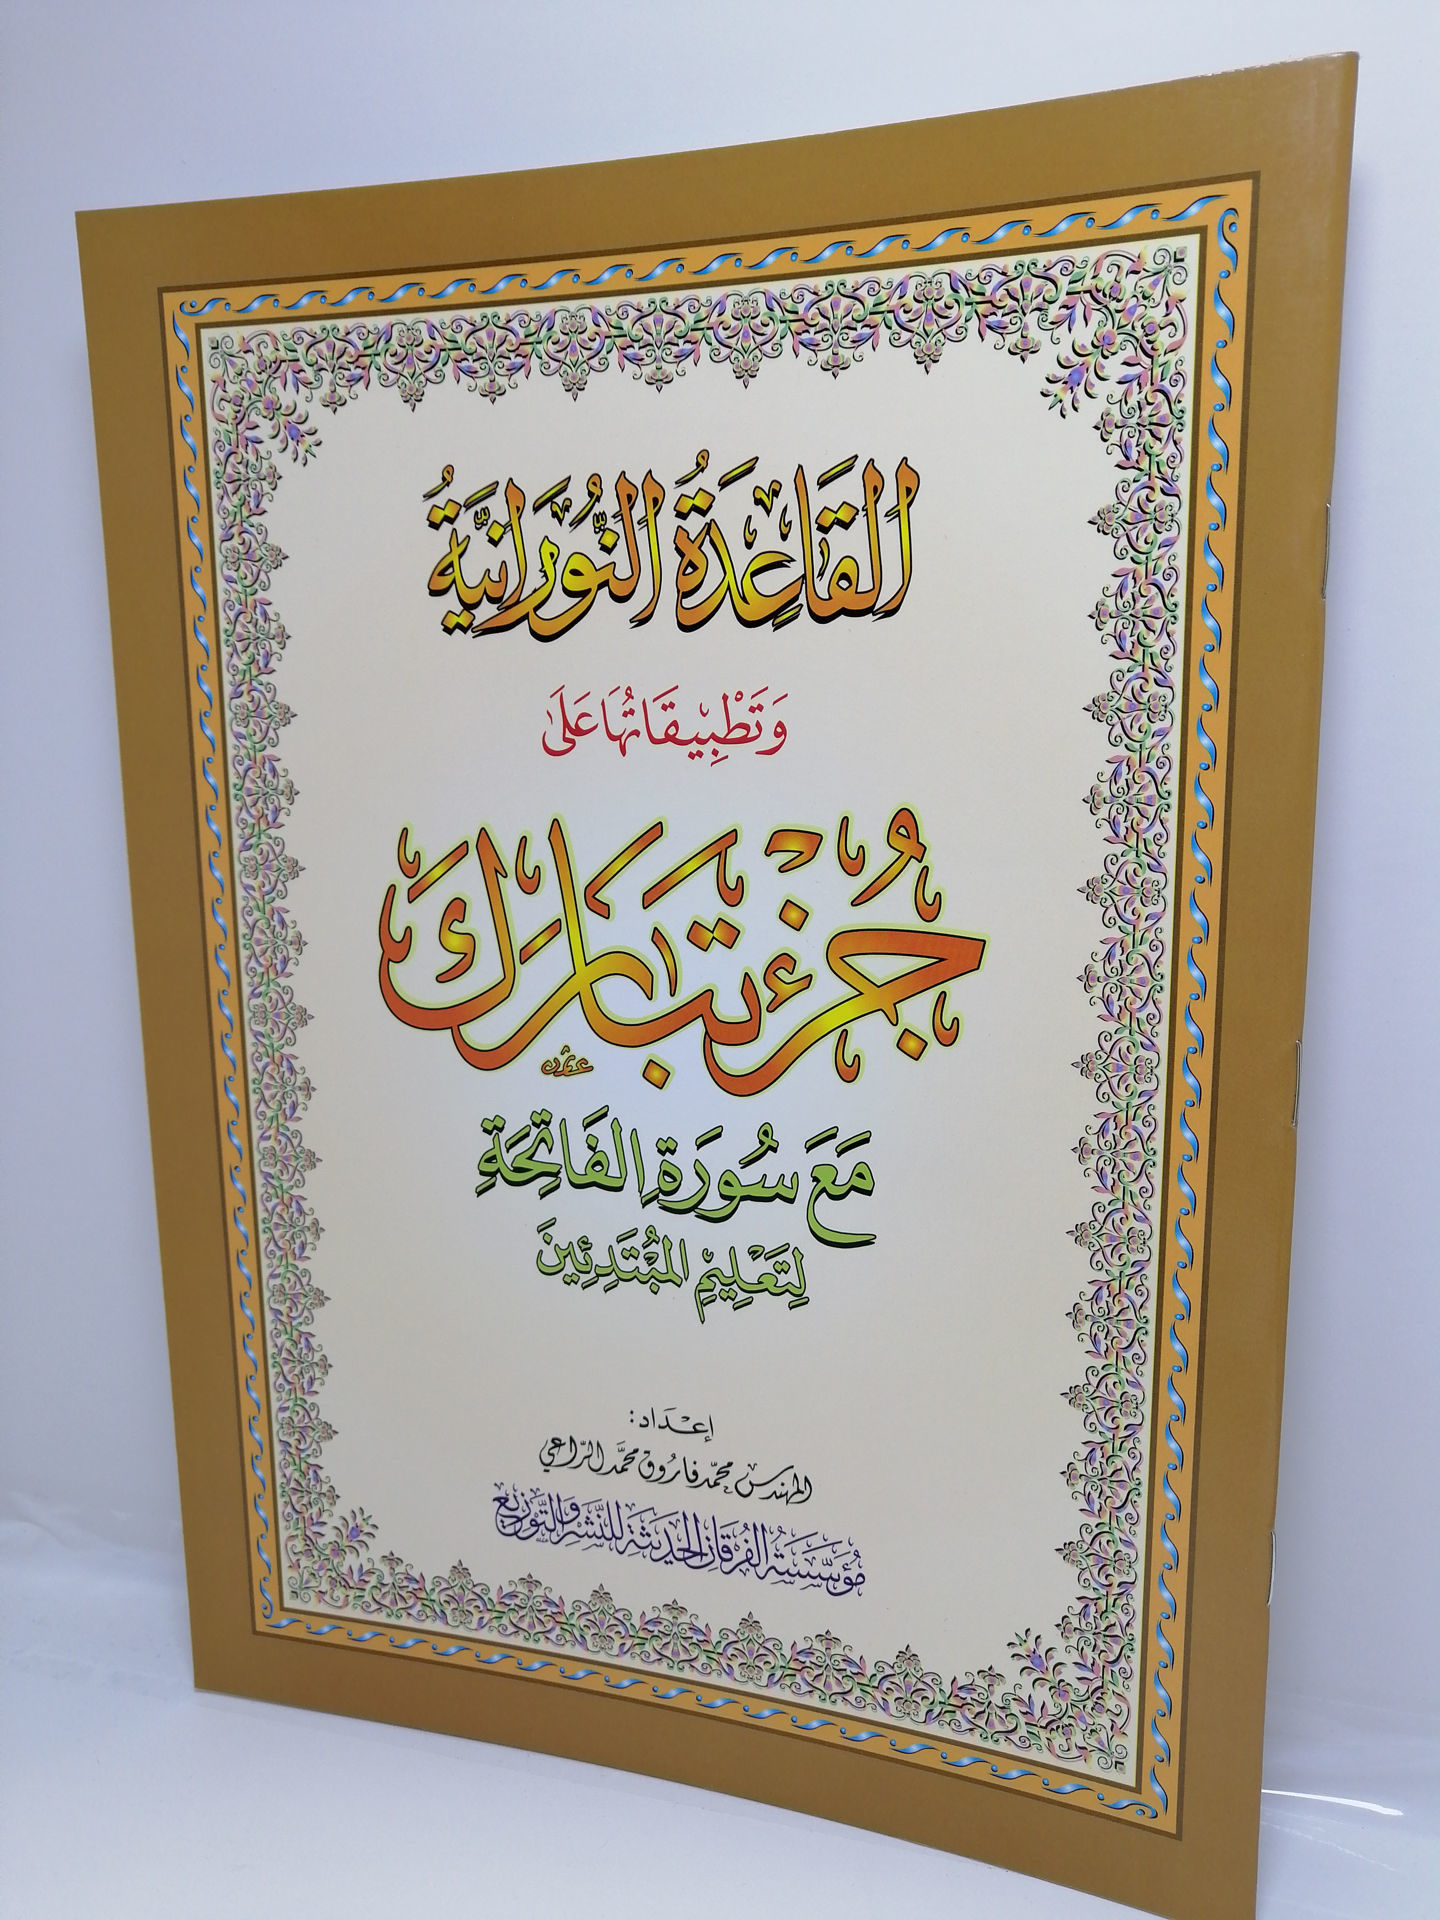 القَاعِدَةُ النُّورَانِيَّةُ
وَتَطْبِيقَاتُهَا عَلَى
جُزْء تَبَارَكَ
مَعَ سُورَةِ الفَاتِحَةِ
لِتَعْلِيمِ المُبْتَدِئِينَ
إعْدَاد:
المهندس محمّد فاروق محمَّد الرّاعي
مُؤَسَّسَةُ الفُرْقَانِ الحَدِيثَةِ لِلنَّشْرِ وَالتَّوْزِيعِ